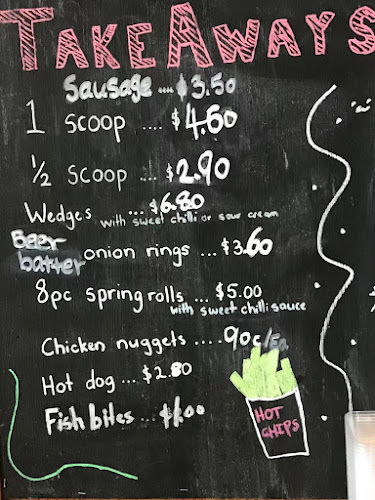 TAKEAWAYS
Sausage .... $3.50
1 SCOOP .... $4.60
½ SCOOP ... $2.90
Wedges ... $6.80
with sweet chilli or sour cream
Beer batter onion rings ... $3.60
8pc spring rolls ... $5.00
with sweet chilli sauce
Chicken nuggets .... 90c/Ea
Hot dog ... $2.80
Fish bites ...
HOT
CHIPS